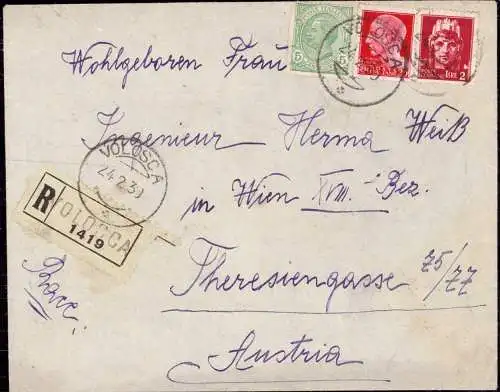 Wohlgeboren Frau
Ingenieur Herma Weiß
in Wien XVIII. Bez.
Theresiengasse 75/77
Austria
VOLOSCA
24.2.30
R
VOLOSCA
1419
5
5
VOLOSCA
LIRE 2